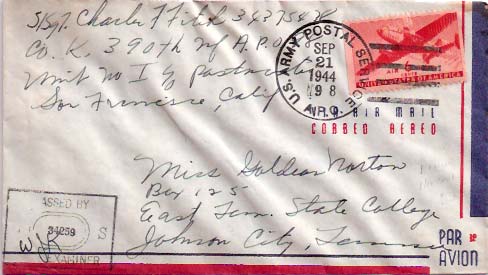 S/Sgt. Charles F Fitch 34375478
Co. K. 390th Inf A.P.O.
Unit No 1 % Postmaster
San Francisco, Calif
U.S. ARMY POSTAL SERVICE
A.P.O.
SEP
21
1944
98
AIR MAIL
6¢
UNITED STATES OF AMERICA
VIA AIR MAIL
CORREO AEREO
Miss Goldean Norton
Box 125
East Tenn. State College
Johnson City, Tennessee
PASSED BY
34259
S
EXAMINER
PAR
AVION